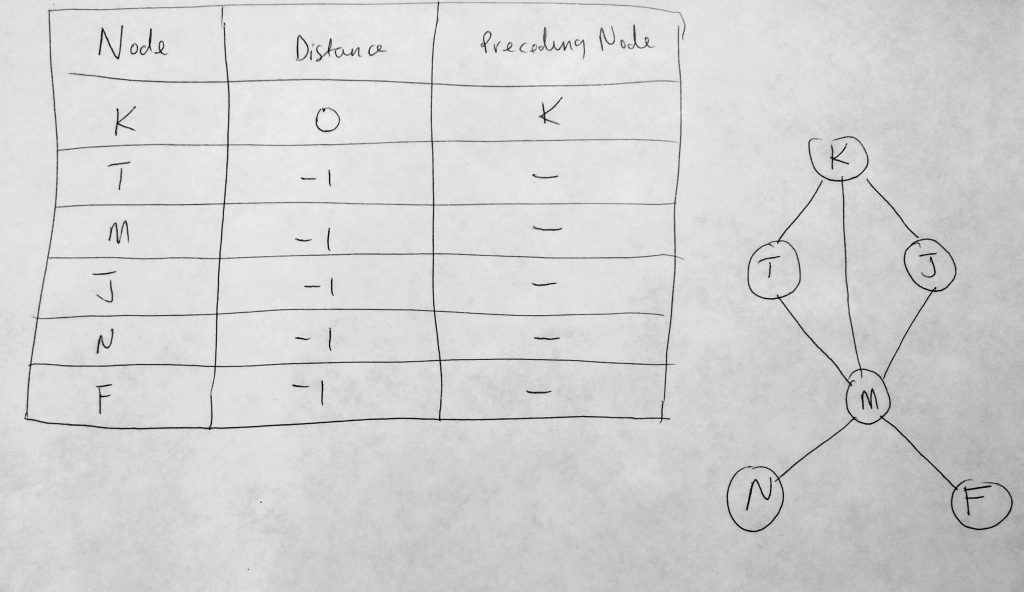 Node Distance Preceding Node
K 0 K
T -1 -
M -1 -
J -1 -
N -1 -
F -1 -
K
T J
M
N F